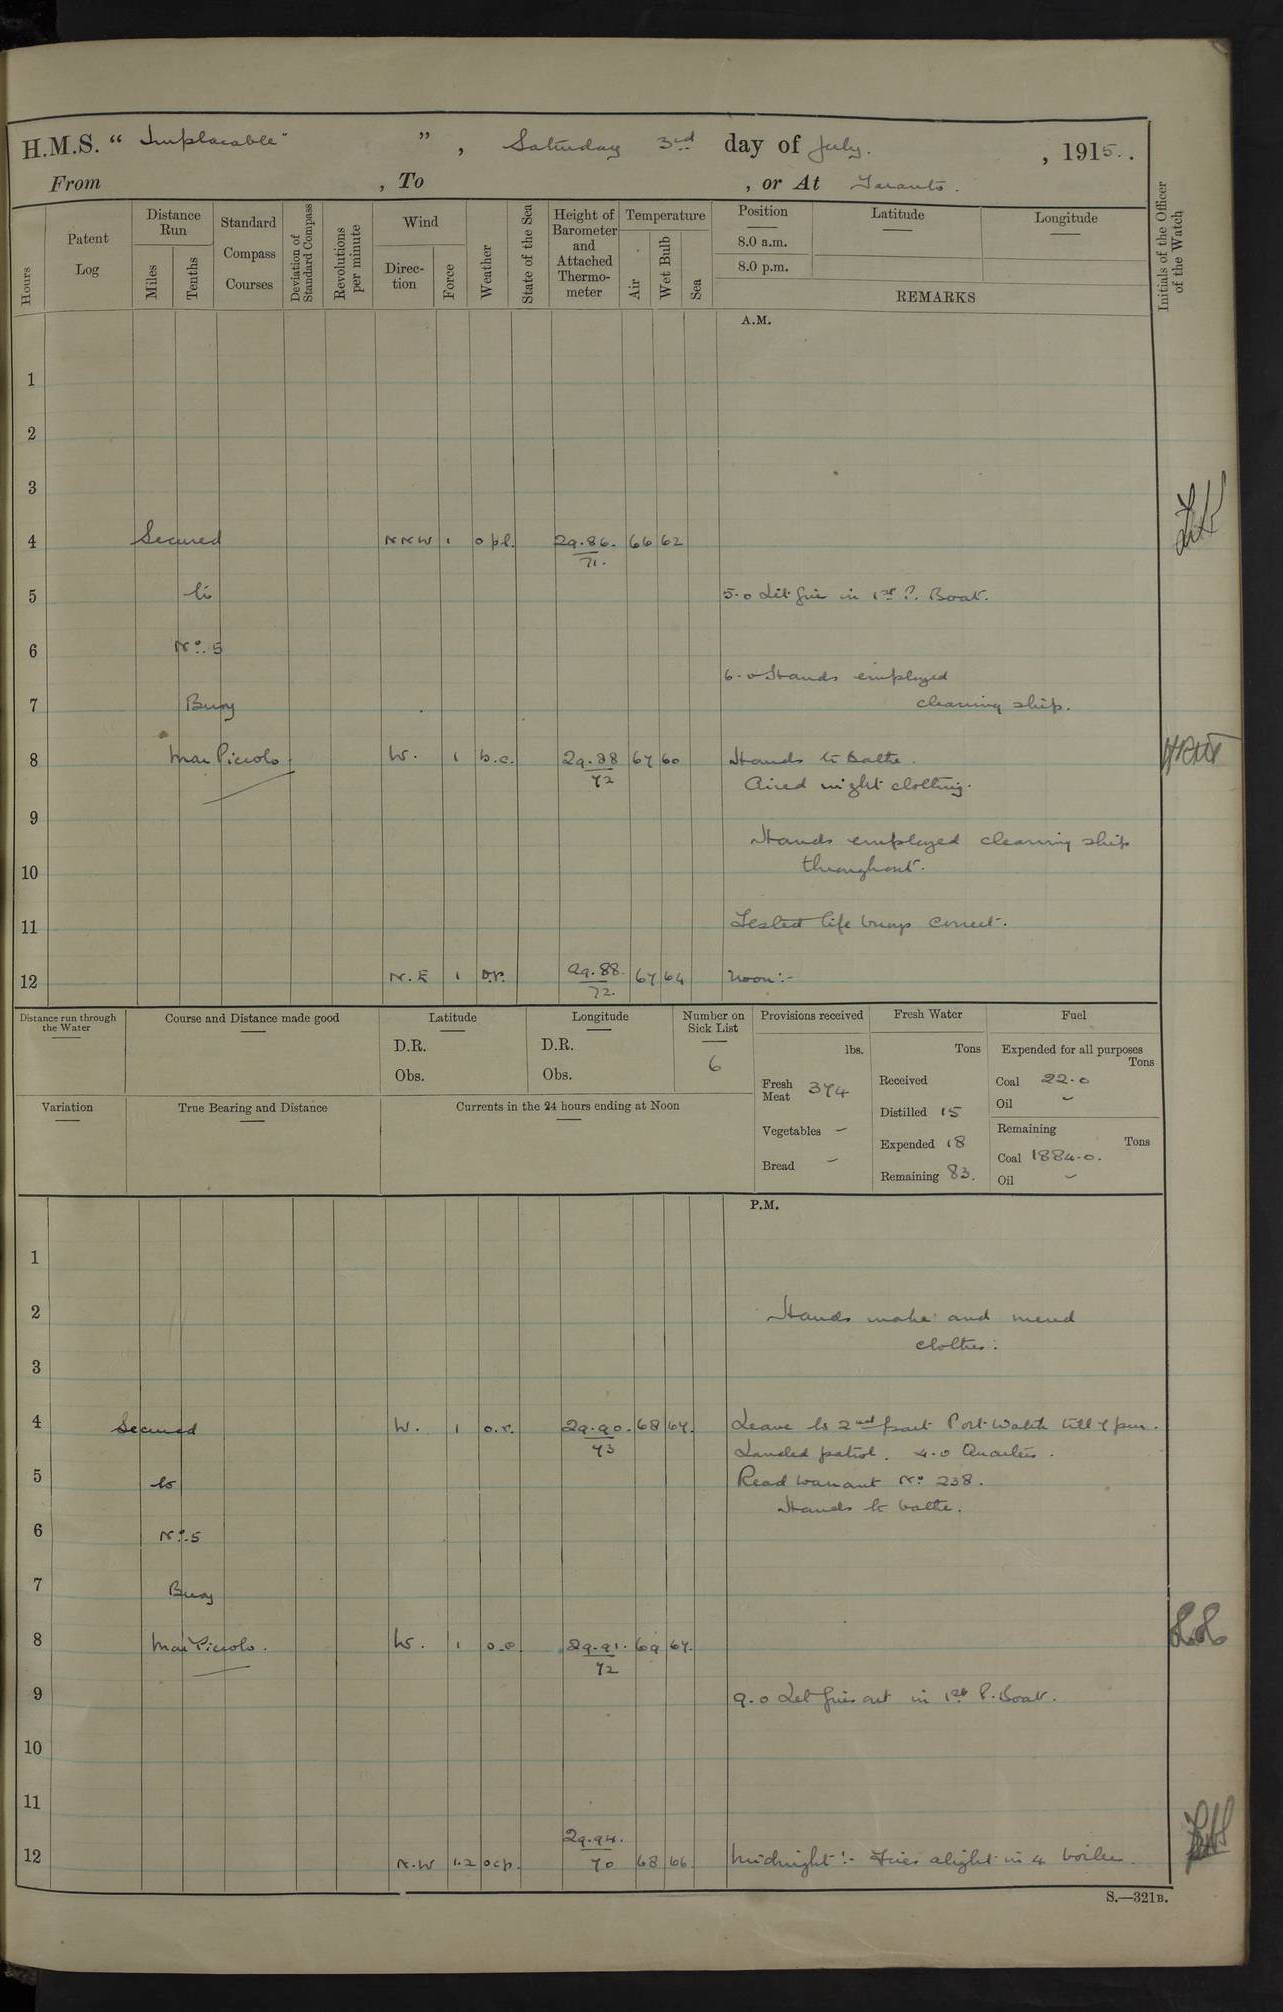 H.M.S. “ Implacable" ” , Saturday 3rd day of July. , 1915.
From , To , or At Taranto.
Hours
Patent Log
Distance Run
Miles
Tenths
Standard Compass Courses
Deviation of Standard Compass
Revolutions per minute
Wind
Direction
Force
Weather
State of the Sea
Height of Barometer and Attached Thermometer
Temperature
Air
Wet Bulb
Sea
Position
8.0 a.m.
8.0 p.m.
Latitude
Longitude
REMARKS
Initials of the Officer of the Watch
A.M.
1
2
3
4 Secured NNW 1 29.86. 66 62
71.
5 to 5.0 Lit fire in 1st P. Boat.
6 No. 5
6.0 Hands employed
7 Buoy cleaning ship.
8 Mar Piccolo W. 1 b.c. 29.88 67 60 Hands to bathe.
72 Aired night clothing.
9
Hands employed cleaning ship
10 throughout.
11 Tested life buoys correct.
12 N.E 1 29.88. 67 64 Noon:-
72.
Distance run through the Water
Course and Distance made good
Latitude
D.R.
Obs.
Longitude
D.R.
Obs.
Number on Sick List
6
Provisions received
lbs.
Fresh Meat 374
Vegetables -
Bread -
Fresh Water
Tons
Received
Distilled 15
Expended 18
Remaining 83.
Fuel
Expended for all purposes
Tons
Coal 22.0
Oil -
Remaining
Tons
Coal 1884.0.
Oil -
Variation
True Bearing and Distance
Currents in the 24 hours ending at Noon
P.M.
1
2 Hands make and mend
clothes.
3
4 Secured W. 1 o.r. 29.90. 68 67. Leave to 2nd part Port Watch till 7 pm.
73 Landed patrol. 4.0 Quarters.
5 to Read warrant No. 238.
Hands to bathe.
6 No. 5
7 Buoy
8 Mar Piccolo. W. 1 o.c. 29.91. 69 67.
72
9 9.0 Let fires out in 1st P. Boat.
10
11
29.94.
12 N.W 1.2 ocp. 70 68 66. Midnight:- Fires alight in 4 boilers.
S.—321B.